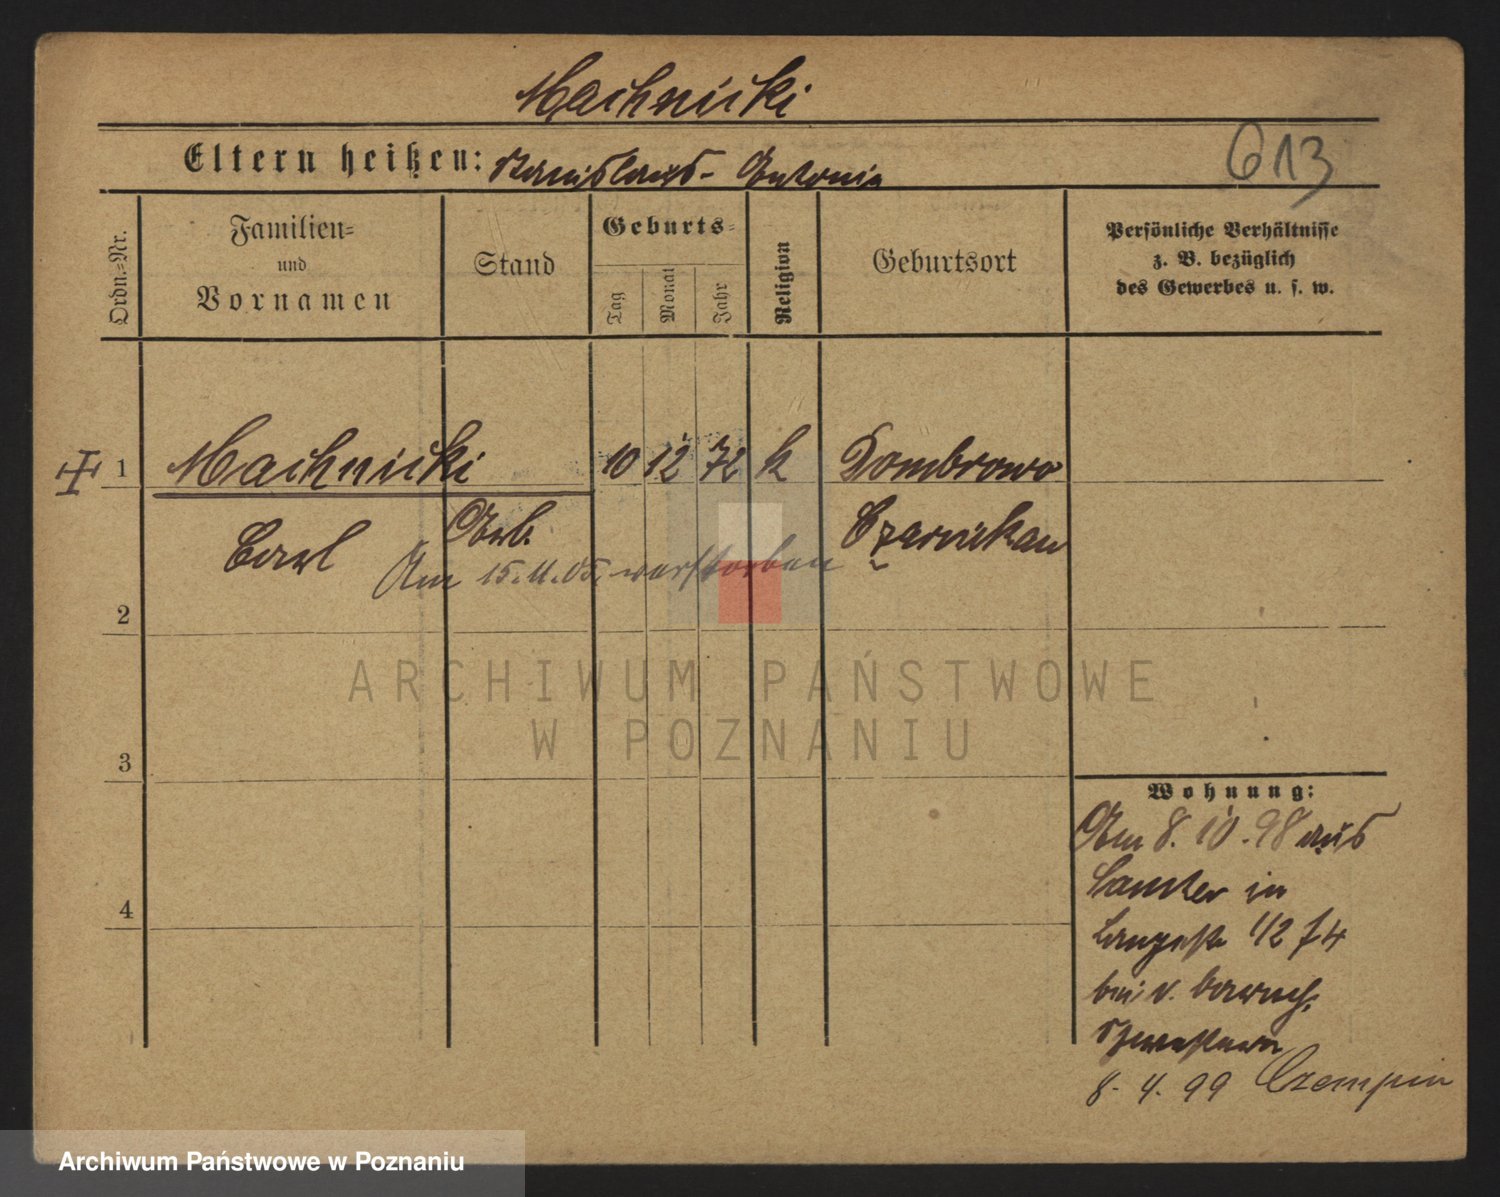 Machnicki
613
Eltern heißen: Stanislaus - Antonia
Ordn.=Nr.
Familien=
und
Vornamen
Stand
Geburts=
Tag
Monat
Jahr
Religion
Geburtsort
Persönliche Verhältnisse
z. B. bezüglich
des Gewerbes u. s. w.
1 Machnicki 10 12 72 k Dombrowo
Carl Arb. Czarnikau
Am 15.11.05. verstorben
2
ARCHIWUM PAŃSTWOWE
W POZNANIU
3
4
Wohnung:
Am 8. 10. 98 aus
Samter in
Langestr 1/2 74
bei v. barmh.
Schwestern
8. 4. 99 Czempin
Archiwum Państwowe w Poznaniu